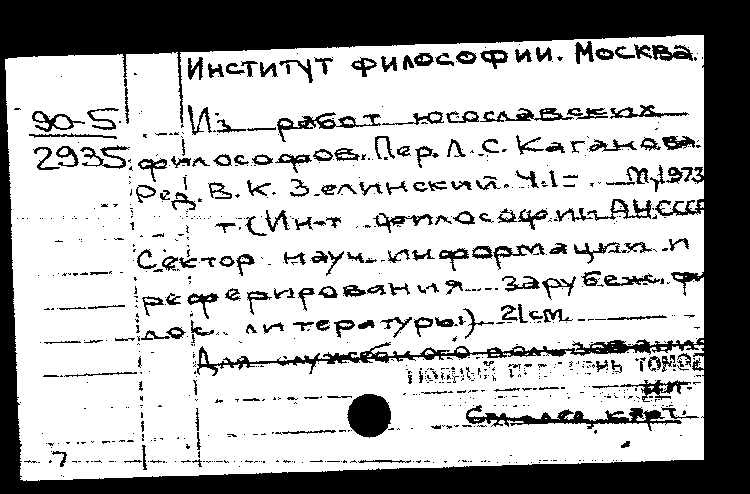 Институт философии. Москва.
90-5
2935
Из работ югославских
философов. Пер. Л. С. Каганова.
Ред. В. К. Зелинский. Ч. 1= М, 1973
т. (Ин-т философии АН СССР
Сектор науч. информации и
реферирования зарубеж. фи
лос. литературы) 21см.
Для служебного пользования
ПОЛНЫЙ ПЕРЕЧЕНЬ ТОМОВ
См. алф. карт.
7